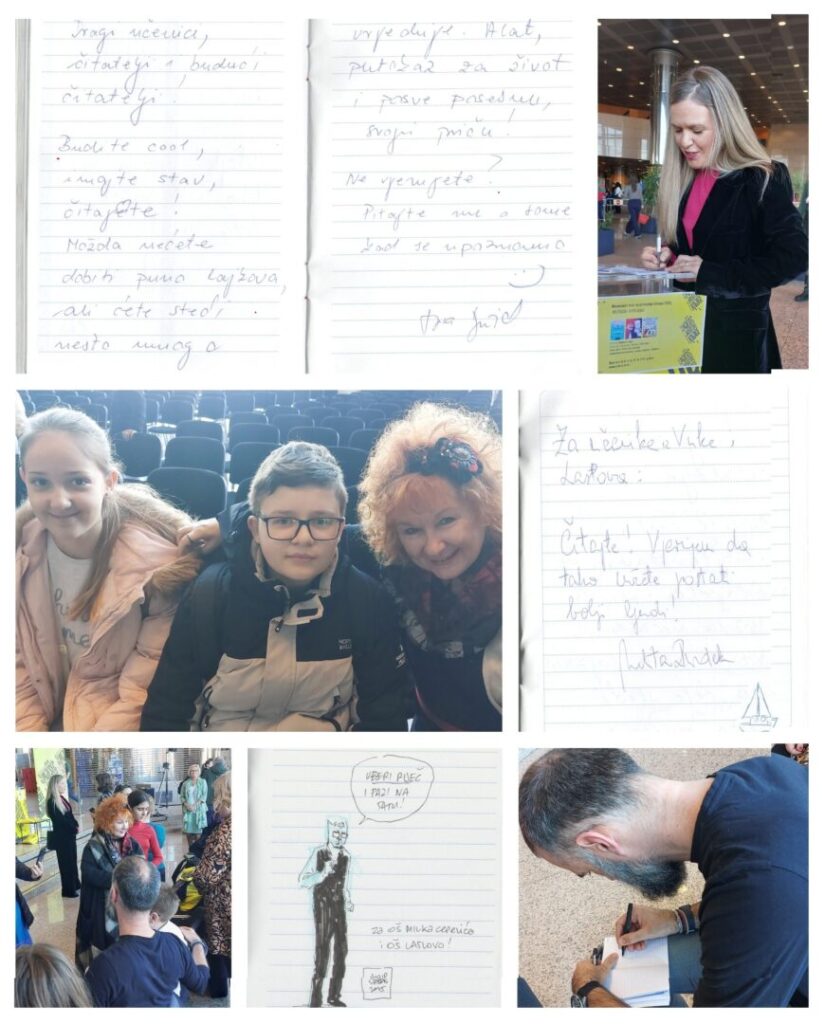 Dragi učenici,
čitatelji i budući
čitatelji!
Budite cool,
imajte stav,
čitajte!
Možda nećete
dobiti puno lajkova,
ali ćete steći
nešto mnogo
vrjednije. Alat,
putokaz za život
i posve posebnu,
svoju priču!
Ne vjerujete?
Pitajte me o tome
kad se upoznamo
Za učenike Vuke i
Laslova:
Čitajte! Vjerujem da
tako postati
bolji ljudi!
I PAZI NA
ZA OŠ MILKA CEPELIĆA
I OŠ LASLOVO!